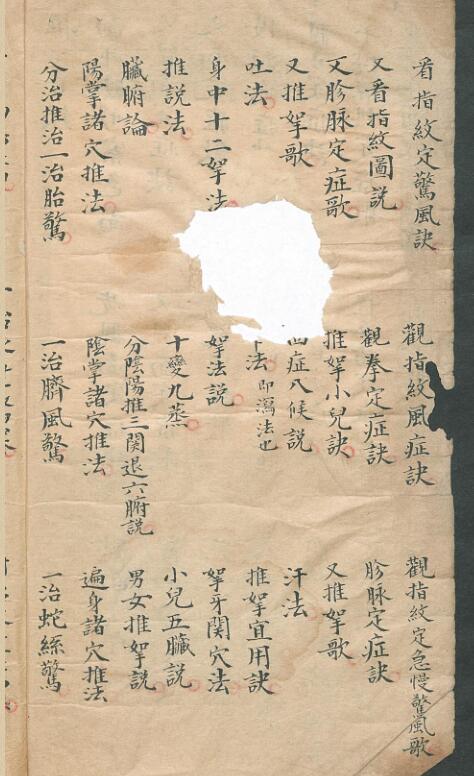 看指紋定驚風訣 觀指紋風症訣 觀指紋定急慢驚風歌
又看指紋圖説 觀拳定症訣 胗脉定症訣
又胗脉定症歌 推拏小兒訣 又推拏歌
又推拏歌 症八候説 汗法
吐法 法即瀉法也 推拏宜用訣
身中十二拏法 拏法説 拏牙関穴法
推説法 十變九蒸 小兒五臟説
臟腑論 分陰陽推三関退六腑説 男女推拏説
陽掌諸穴推法 陰掌諸穴推法 遍身諸穴推法
分治推治一治胎驚 一治臍風驚 一治蛇絲驚